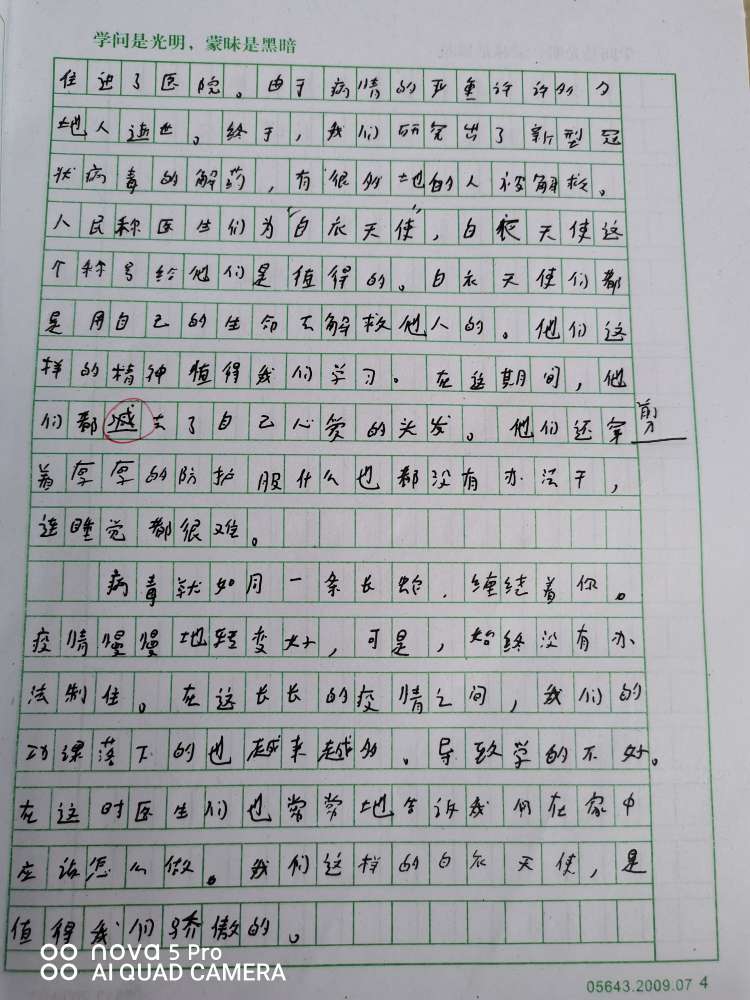 学问是光明，蒙昧是黑暗
住进了医院。由于病情的严重许许多多
地人逝世。终于，我们研究出了新型冠
状病毒的解药，有很多地的人被解救。
人民称医生们为“白衣天使”，白衣天使这
个称号给他们是值得的。白衣天使们都
是用自己的生命去解救他人的。他们这
样的精神值得我们学习。在这期间，他
们都减去了自己心爱的头发。他们还穿
剪
着厚厚的防护服什么也都没有办法干，
连睡觉都很难。
病毒就如同一条长蛇，缠绕着你。
疫情慢慢地转变好，可是，始终没有办
法制住。在这长长的疫情之间，我们的
功课落下的也越来越多。导致学的不好。
在这时医生们也常常地告诉我们在家中
应该怎么做。我们这样的白衣天使，是
值得我们骄傲的。
nova 5 Pro
AI QUAD CAMERA
05643.2009.07 4